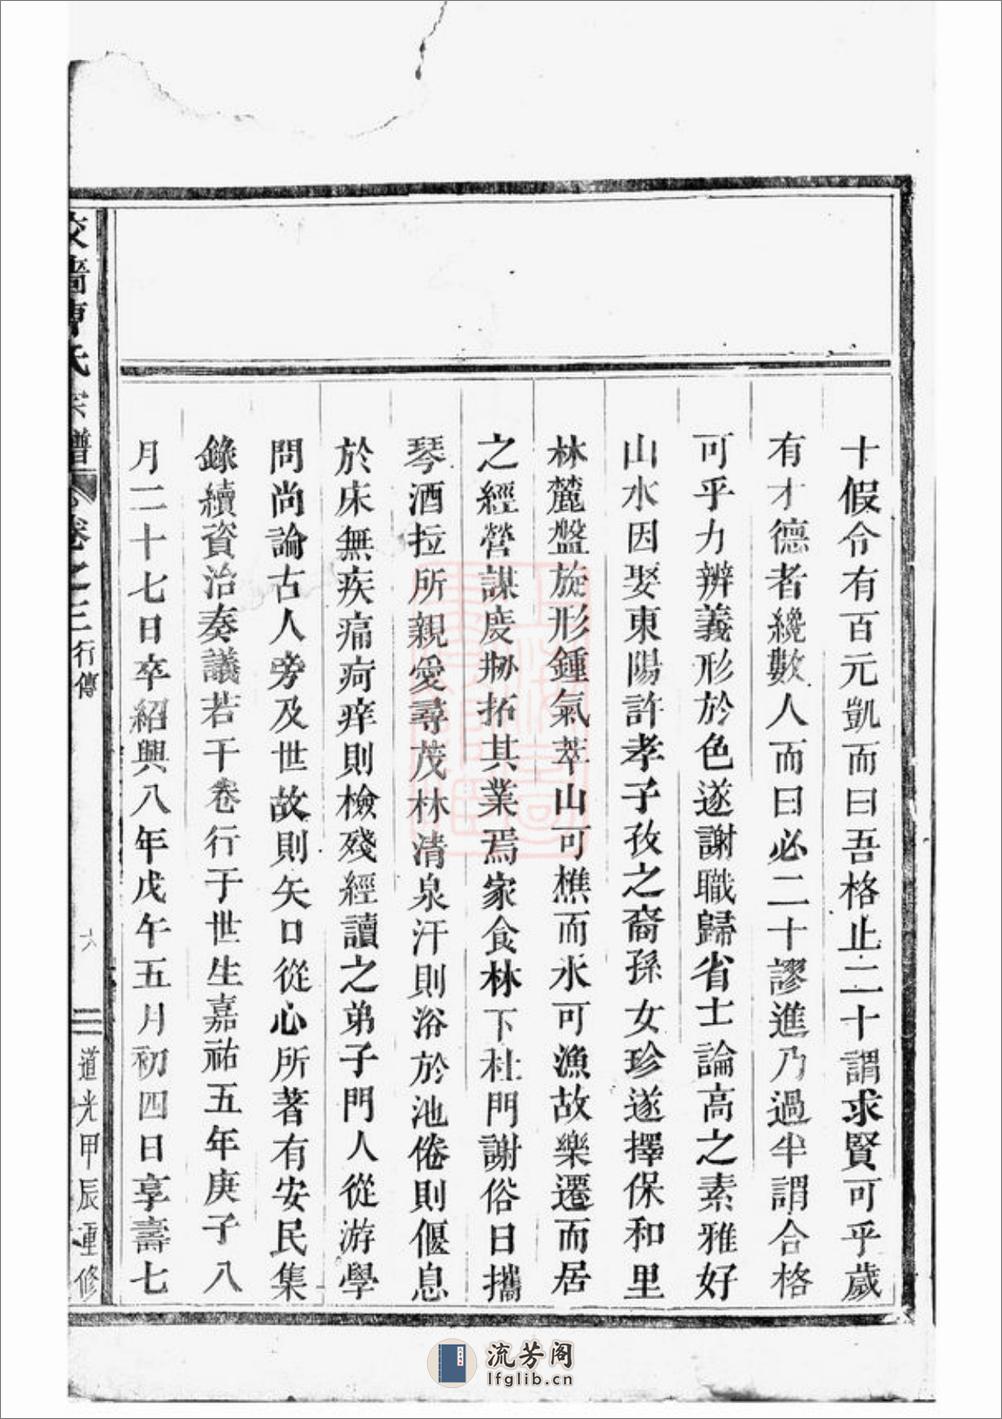 十假令有百元凱而曰吾格止二十謂求賢可乎歲
有才德者纔數人而曰必二十謬進乃過半謂合格
可乎力辨義形於色遂謝職歸省士論高之素雅好
山水因娶東陽許孝子孜之裔孫女珍遂擇保和里
林麓盤旋形鍾氣萃山可樵而水可漁故樂遷而居
之經營謀度刱拓其業焉家食林下杜門謝俗日攜
琴酒拉所親愛尋茂林清泉汗則浴於池倦則偃息
於床無疾痛疴痒則檢殘經讀之弟子門人從游學
問尚論古人旁及世故則矢口從心所著有安民集
錄續資治奏議若干卷行于世生嘉祐五年庚子八
月二十七日卒紹興八年戊午五月初四日享壽七
氏宗譜 卷之三 行傳 六 道光甲辰重修
流芳阁
lfglib.cn